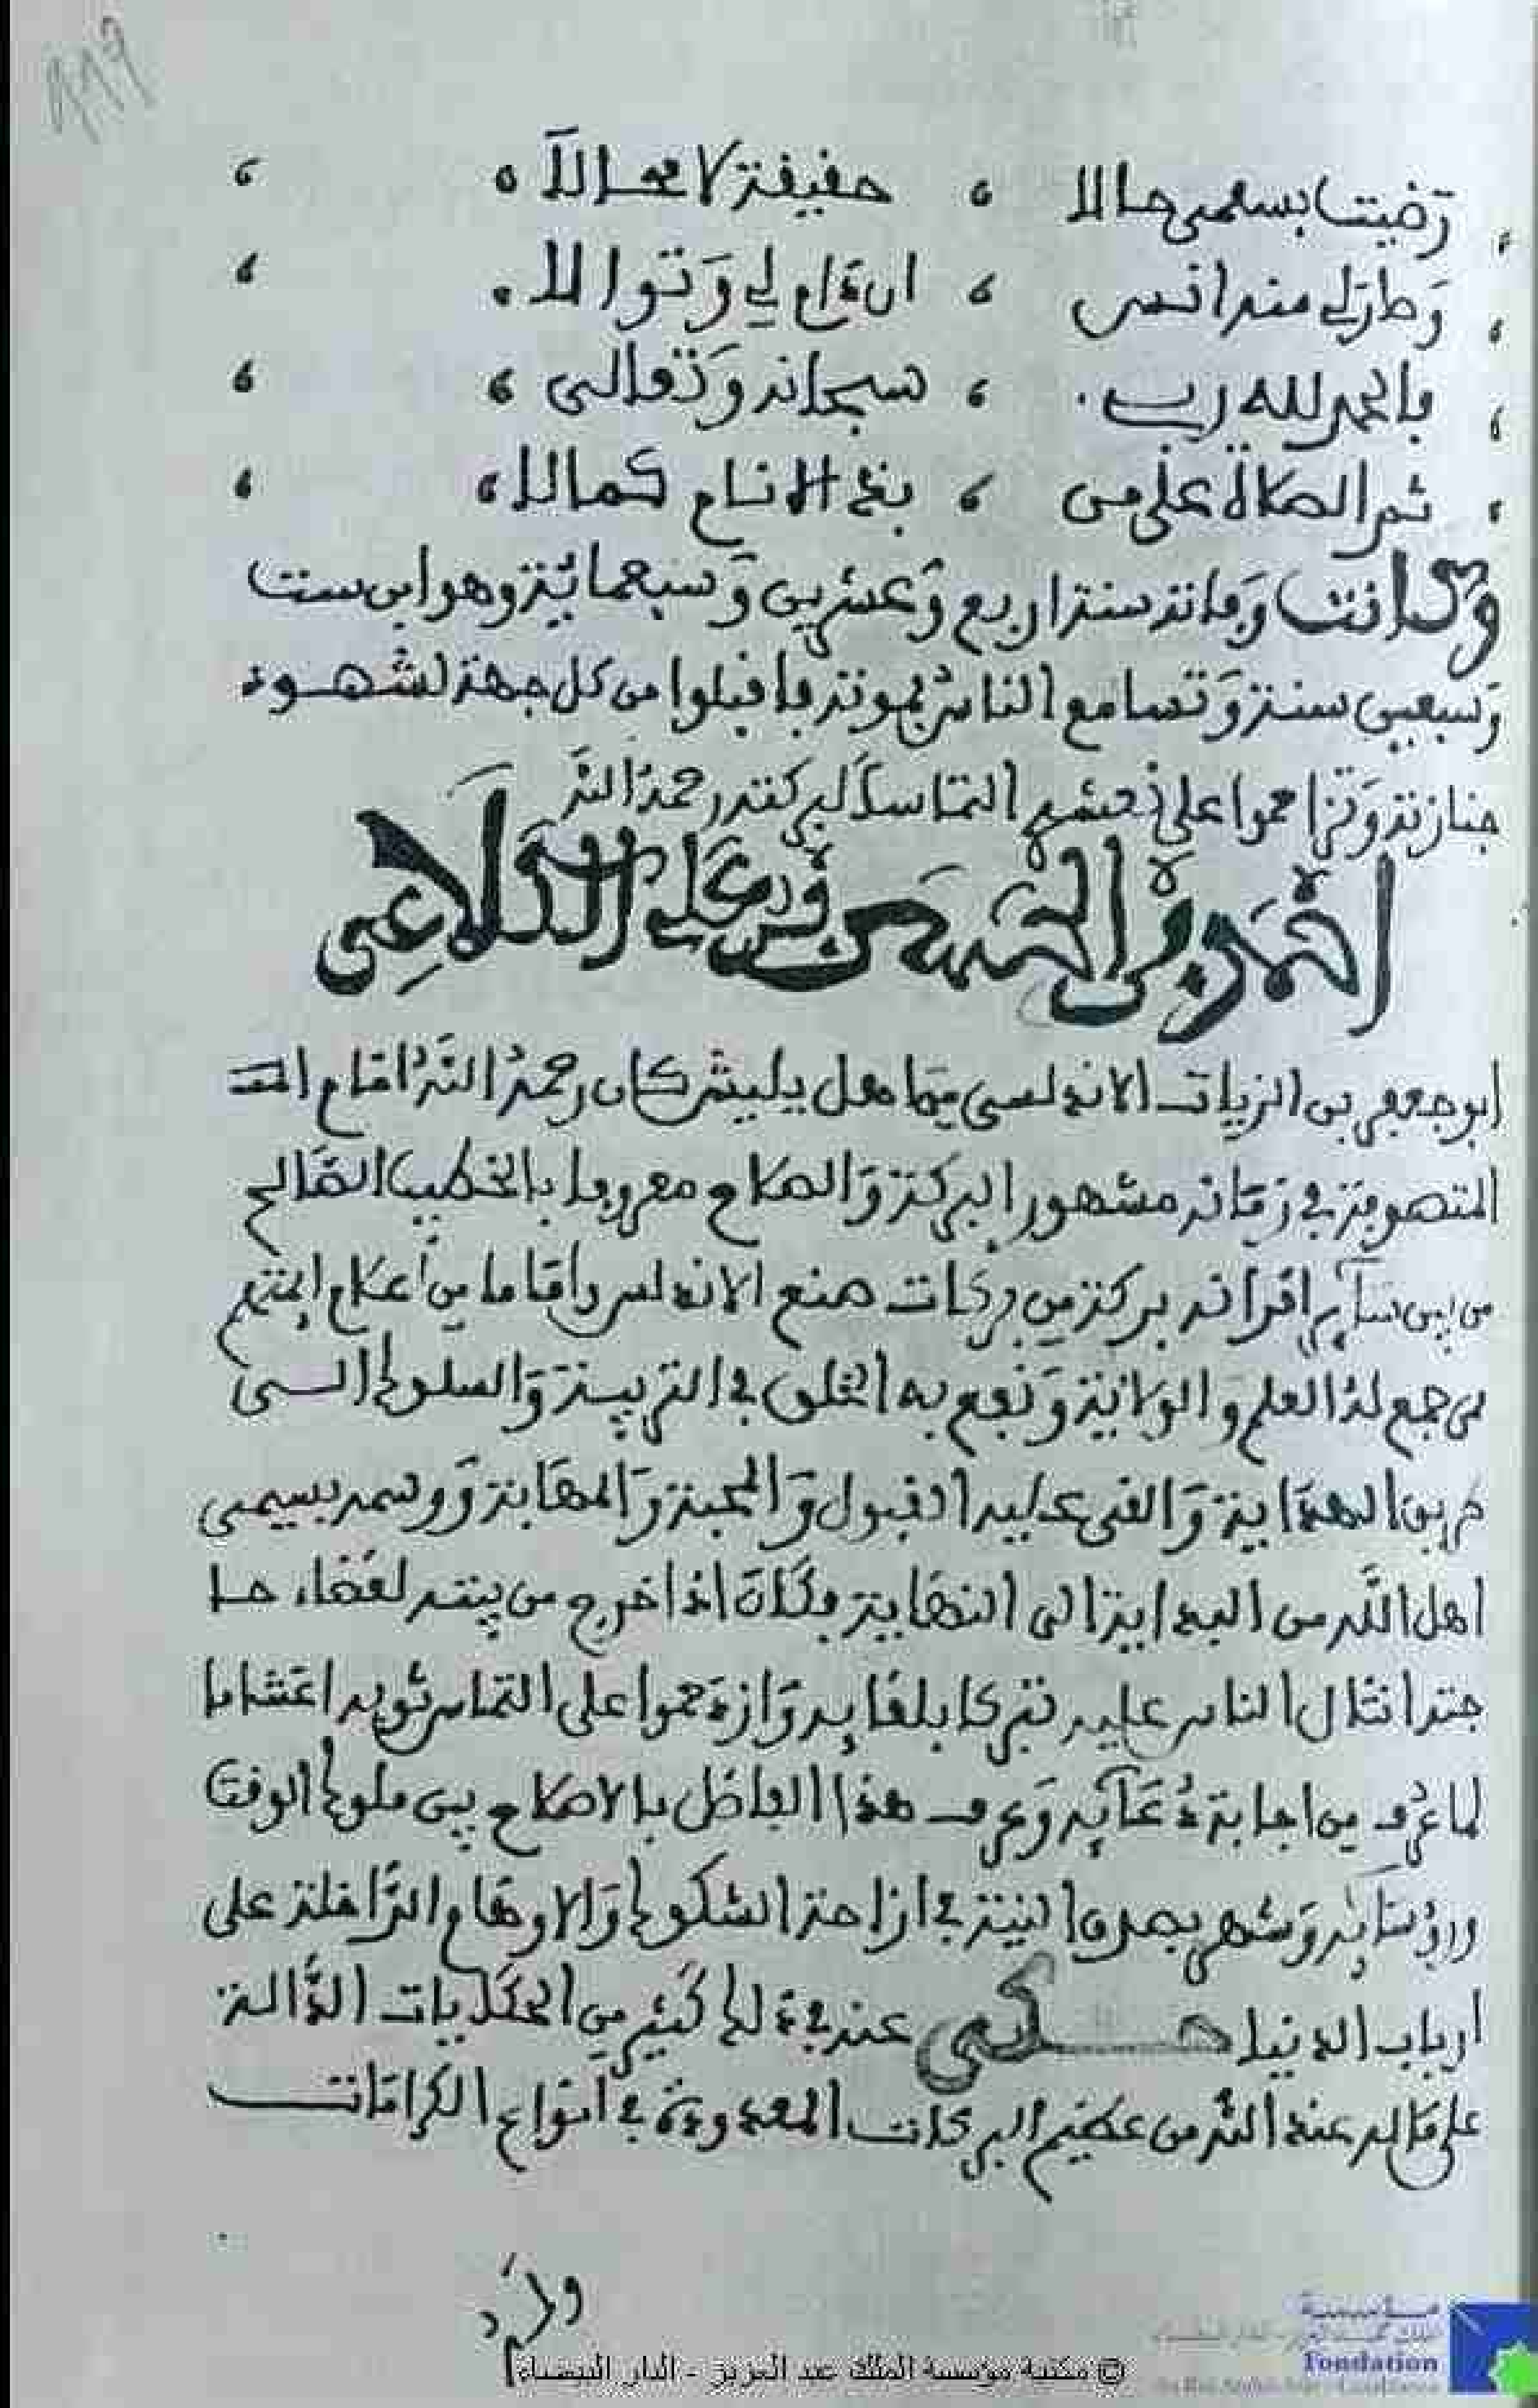 رضيت بسعمى حالا ، حقيقة لا محالا ،
وطال منه انسى ، ان دام لي وتوالا ،
فالحمد لله رب ، سبحانه وتعالى ،
ثم الصلاة على من ، بذ الانام كمالا ،
وكانت وفاته سنة اربع وعشرين وسبعمائة وهو ابن ست
وسبعين سنة وتسامع الناس بموته فاقبلوا من كل جهة لشهود
جنازته وتزاحموا على نعشه التماسا لبركته رحمه الله
احمد بن الحسن بن علي الكلاعي
ابو جعفر بن الزيات الاندلسي من اهل بليش كان رحمه الله امام
المتصوفة في زمانه مشهور البركة والصلاح معروفا بالخطيب الصالح
من بين ساير اقرانه بركة من بركات صنع الاندلس واماما من اعلام
من جمع له العلم والولاية ونفع به الخلق في التربية والسلوك الى سنى
طريق الهداية والقى عليه القبول والمحبة والمهابة ووسمه بسيمى
اهل الله من البداية الى النهاية فكان اذا خرج من بيته لقضاء حا
جته انثال الناس عليه تبركا بلقايه وازدحموا على التماس ثوبه اغتناما
لما عرف من اجابة دعآيه وعرف هذا الفاضل بالاصلاح بين ملوك الوقت
ورؤسآيه وشهر بصدق النية في ازاحة الشكوك والاوهام الداخلة على
ارباب الدنيا حكى عنه في ذلك كثير من الحكايات الدالة
على ما له عند الله من عظيم البركات المعدودة في انواع الكرامات
© مكتبة مؤسسة الملك عبد العزيز - الدار البيضاء
مؤسسة
Fondation